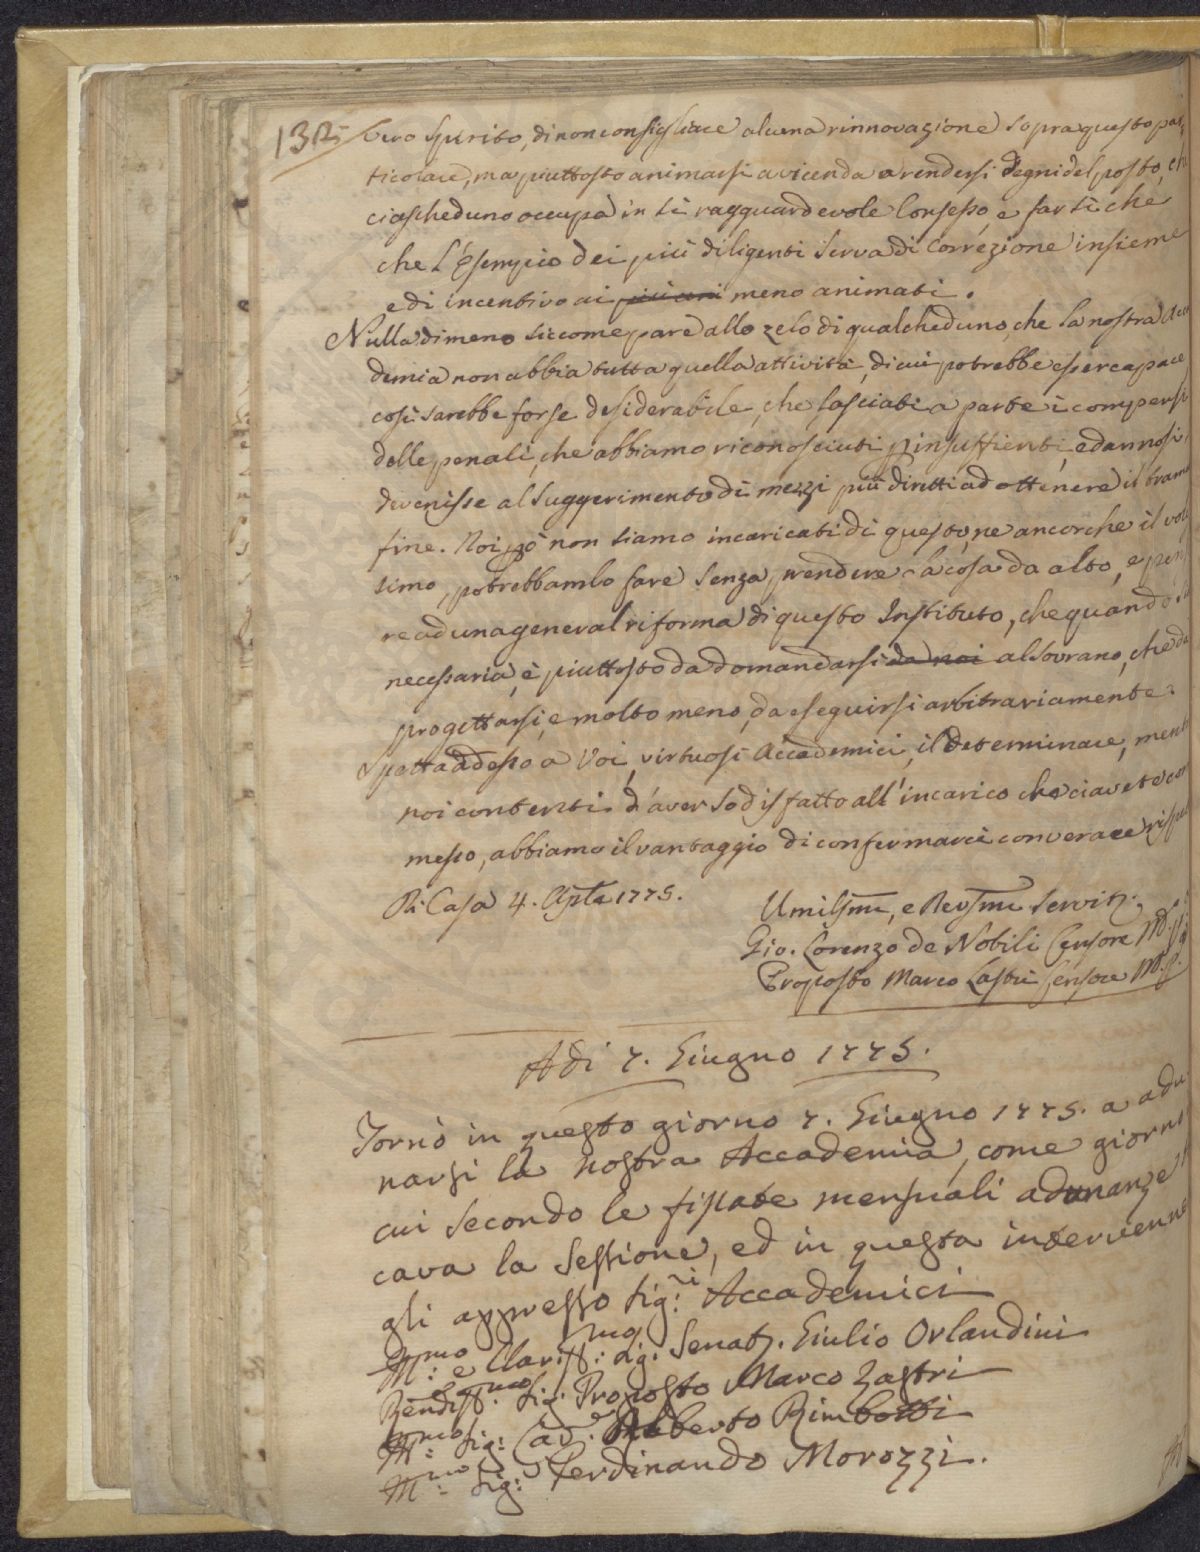 132
vero Spirito, di non consigliare alcuna rinnovazione sopra questo par-
ticolare, ma piuttosto animarsi a vicenda a rendersi degni del posto, che
ciascheduno occupa in sì ragguardevole Consesso, e far sì che
che l'Esempio dei più diligenti serva di correzione insieme
e di incentivo ai meno animati.
Nulladimeno siccome pare allo zelo di qualcheduno, che la nostra Acca
demia non abbia tutta quella attività, di cui potrebbe esser capace
così sarebbe forse desiderabile, che lasciati a parte i compensi
delle penali, che abbiamo riconosciuti p insuffienti, e dannosi,
devenisse al suggerimento di mezzi più diretti ad ottenere il bramato
fine. Noi pò non siamo incaricati di questo, ne ancorche il
simo, potrebbamlo fare senza prendere la cosa da alto, e
re ad una general riforma di questo Instituto, che quando
necessaria, è piuttosto da domandarsi da noi al Sovrano, che da
progettarsi, e molto meno, da eseguirsi arbitrariamente.
Spetta adesso a Voi, virtuosi Accademici, il determinare, mentre
noi contenti d'aver sodisfatto all'incarico che ci avete com
messo, abbiamo il vantaggio di confermarci con verace
Di Casa 4. Aple 1775.
Umilsmi, e Devsmi Servitri
Gio. Lorenzo de Nobili Censore
Proposto Marco Lastri Censore
Adi 7. Giugno 1775.
Tornò in questo giorno 7. Giugno 1775. a adu
narsi la nostra Accademia, come giorno
cui secondo le fissate mensuali adunanze
cava la Sessione, ed in questa intervennero
gli appresso Sig:ri Accademici
Ill:mo e Clariss:mo Sig. Senat. Giulio Orlandini
Rendiss:mo Sig. Proposto Marco Lastri
Ill:mo Sig: Cav:e Roberto Rimbotti
Ill:mo Sig: Ferdinando Morozzi.